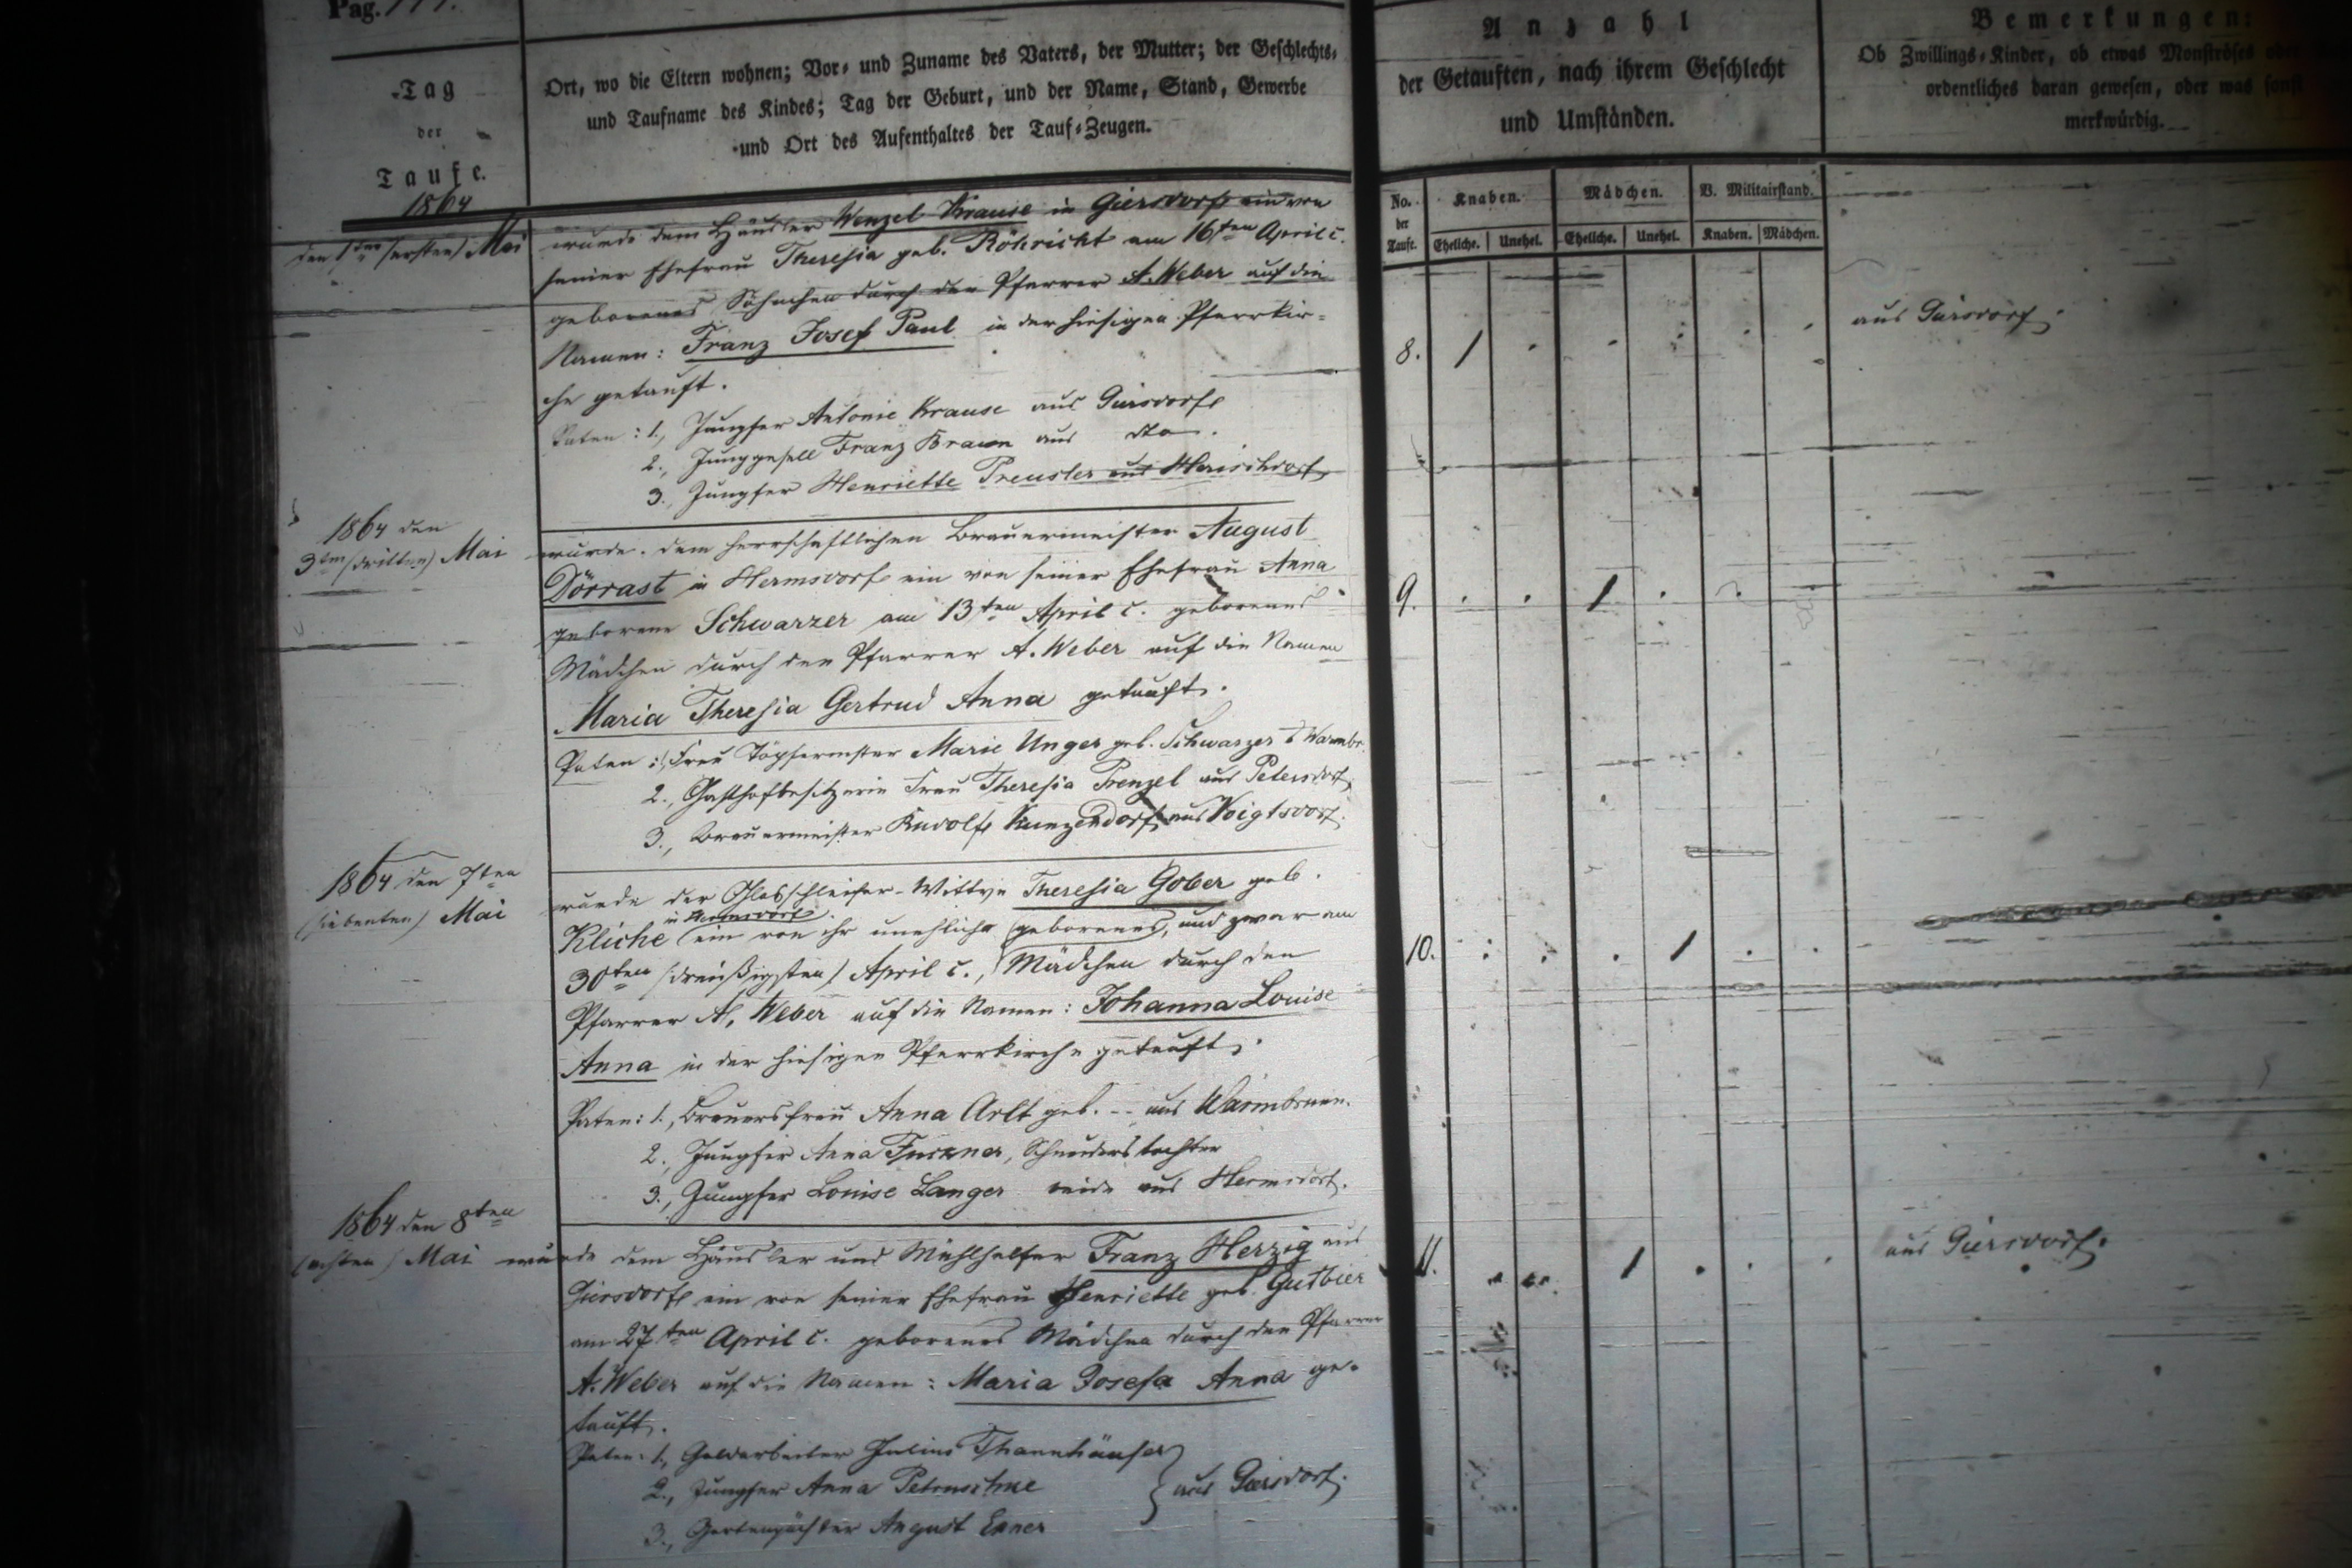 Pag.
Tag
der
Taufe.
1864
Ort, wo die Eltern wohnen; Vor- und Zuname des Vaters, der Mutter; der Geschlechts-
und Taufname des Kindes; Tag der Geburt, und der Name, Stand, Gewerbe
und Ort des Aufenthaltes der Tauf-Zeugen.
Anzahl
der Getauften, nach ihrem Geschlecht
und Umständen.
Bemerkungen:
Ob Zwillings-Kinder, ob etwas Monströses oder
ordentliches daran gewesen, oder was sonst
merkwürdig.
No. der Taufe.
Knaben.
Mädchen.
V. Militairstand.
Eheliche. Unehel. Eheliche. Unehel. Knaben. Mädchen.
den 1ten (ersten) Mai
wurde dem Häusler Wenzel Krause in Giersdorf ein von
seiner Ehefrau Theresia geb. Röhricht am 16ten April c.
geborenes Söhnchen durch den Pfarrer A. Weber auf die
Namen: Franz Josef Paul in der hiesigen Pfarrkir-
che getauft.
8. 1
aus Giersdorf.
Paten: 1., Jungfer Antonie Krause aus Giersdorf
2., Junggesell Franz Braun aus dto.
3., Jungfer Henriette Preusler aus Herischdorf
1864 den
3ten (dritten) Mai
wurde dem herrschaftlichen Brauermeister August
Dörrast in Hermsdorf ein von seiner Ehefrau Anna
geborene Schwarzer am 13ten April c. geborenes
Mädchen durch den Pfarrer A. Weber auf die Namen
Maria Theresia Gertrud Anna getauft.
9. 1
Paten: 1., Frau Marie Unger geb. Schwarzer
2., Gasthofbesitzerin Frau Theresia Frenzel aus Petersdorf
3., Brauermeister Rudolf Kunzendorf aus Voigtsdorf.
1864 den 7ten
(siebenten) Mai
wurde der Glasschleifer-Wittwe Theresia Gober geb.
in Hermsdorf
Kliche ein von ihr unehlich geborenes, und zwar am
30ten (dreißigsten) April c., Mädchen durch den
Pfarrer A. Weber auf die Namen: Johanna Louise
Anna in der hiesigen Pfarrkirche getauft.
10. 1
Paten: 1., Brauersfrau Anna Arlt geb. -- aus Warmbrunn.
2., Jungfer Anna
3., Jungfer Louise Langer beide aus Hermsdorf.
1864 den 8ten
(achten) Mai
wurde dem Häusler und Mühlhelfer Franz Herzig aus
Giersdorf ein von seiner Ehefrau Henriette geb. Gutbier
am 27ten April c. geborenes Mädchen durch den Pfarrer
A. Weber auf die Namen: Maria Josefa Anna ge-
tauft.
11. 1
aus Giersdorf.
Paten: 1., Goldarbeiter Julius Thannhäuser
2., Jungfer Anna
aus Giersdorf.
3., Gartenpächter August Exner